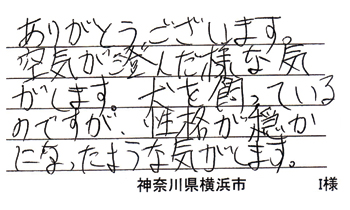 ありがとうございます。
空気が澄んだ様な気
がします。犬を飼っている
のですが、性格が穏か
になったような気がします。
神奈川県横浜市 I様